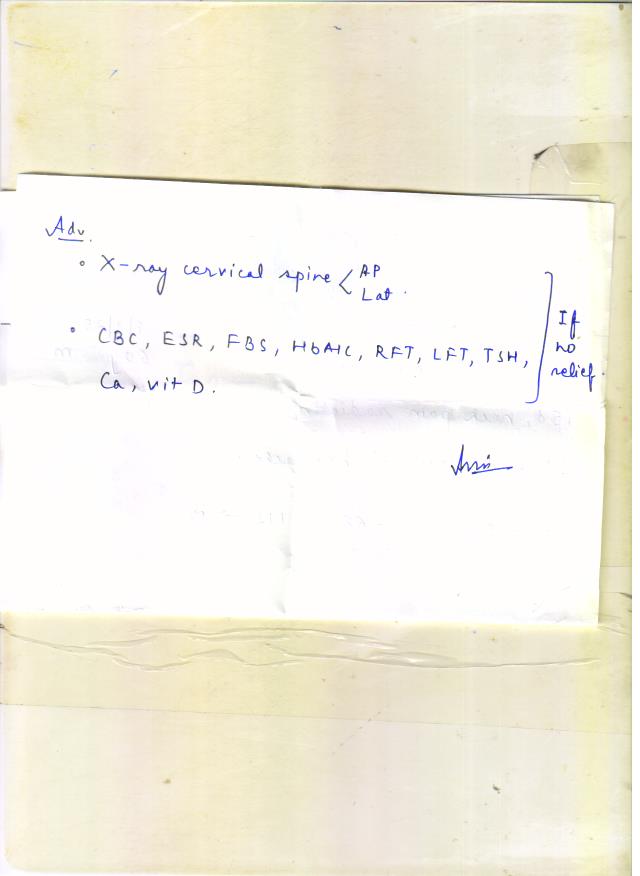 Adv.
• X-ray cervical spine < AP
Lat.
• CBC, ESR, FBS, HbA1C, RFT, LFT, TSH,
Ca, vit D.
If
no
relief.